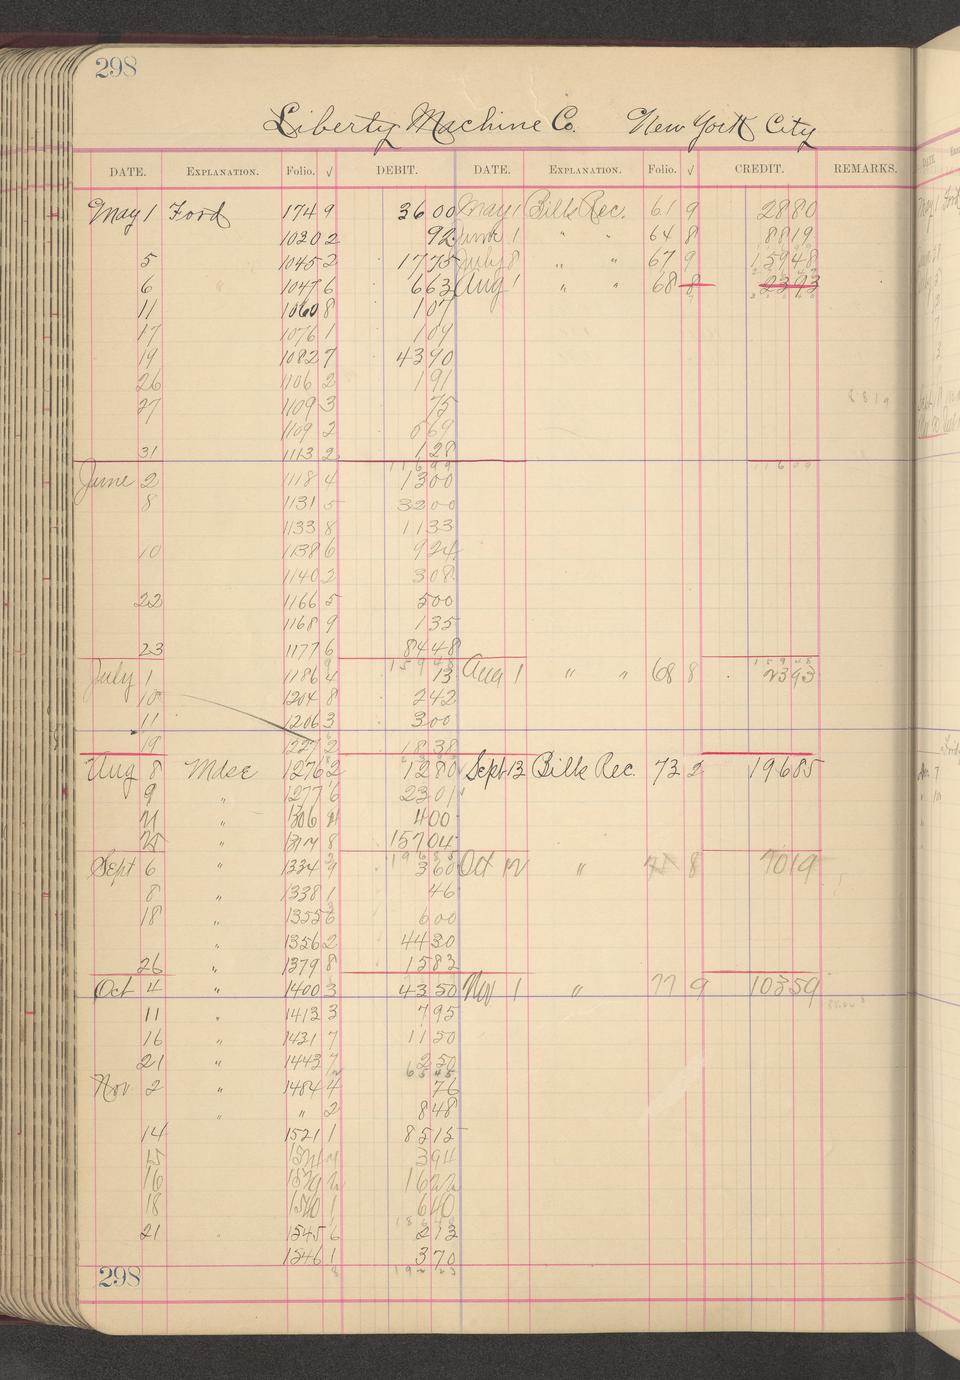 298
Liberty Machine Co. New York City
DATE. EXPLANATION. Folio. √ DEBIT. DATE. EXPLANATION. Folio. √ CREDIT. REMARKS.
May 1 Ford 174 9 3600 May 1 Bills Rec. 61 9 2880
1020 2 92 June 1 " " 64 8 8819
5 1045 2 1775 July 8 " " 67 9 15948
6 1047 6 663 Aug 1 " " 68 8 2393
11 1060 8 107
17 1076 1 109
19 1082 7 4390
26 1106 2 191
27 1109 3 75 8819
1109 2 569
31 1113 2 128
11699 11699
June 2 1118 4 1300
8 1131 5 3200
1133 8 1133
10 1138 6 924
1140 2 308
22 1166 5 500
1168 9 135
23 1177 6 8448
15948 15948
July 1 1186 4 13 Aug 1 " " 68 8 2393
10 1204 8 242
11 1206 3 300
19 1227 2 1838
Aug 8 Mdse 1276 2 1280 Sept 13 Bills Rec. 73 2 19685
9 " 1277 6 2301
21 " 1306 4 400
25 " 8 15704
19685
Sept 6 " 1334 9 360 Oct 12 " 8 7019
8 " 1338 1 46
18 " 1355 6 600
" 1356 2 4430
26 " 1379 8 1583
Oct 4 " 1400 3 4350 Nov 1 " 77 9 10359
11 " 1413 3 795
16 " 1431 7 1150
21 " 1443 7 250
6545
Nov 2 " 1484 4 76
" " 2 848
14 1521 1 8515
15 394
16 1622
18 1540 1 640
21 1545 6 213
1546 1 370
298